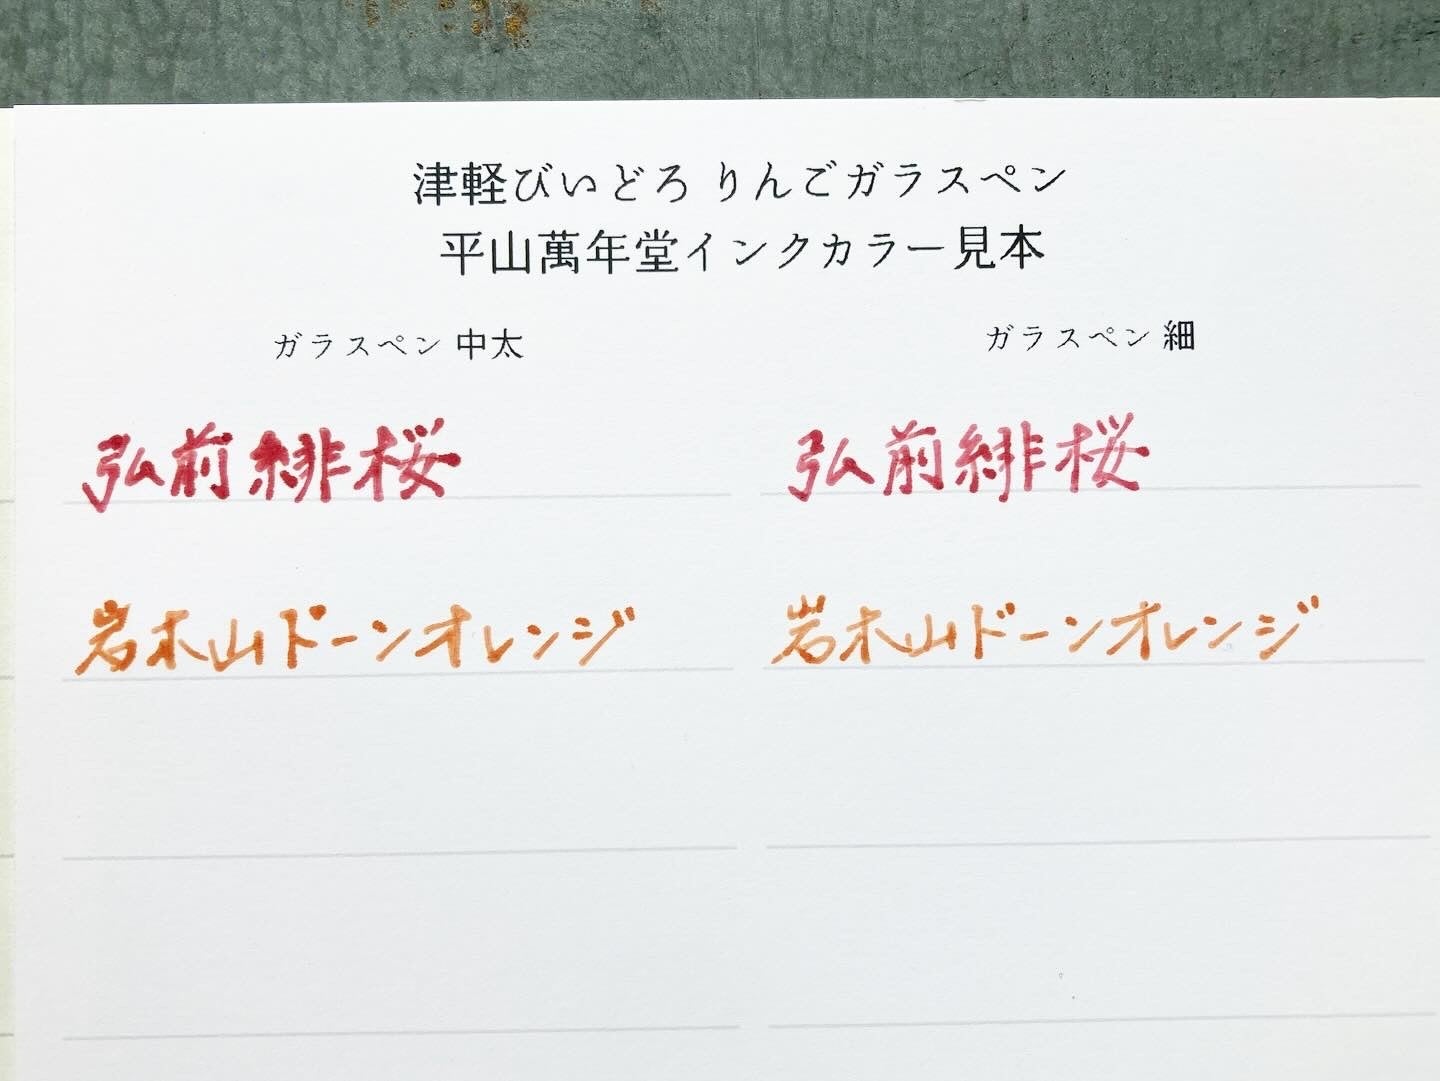 津軽びいどろ りんごガラスペン
平山萬年堂インクカラー見本
ガラスペン 中太
ガラスペン 細
弘前緋桜
弘前緋桜
岩木山ドーンオレンジ
岩木山ドーンオレンジ